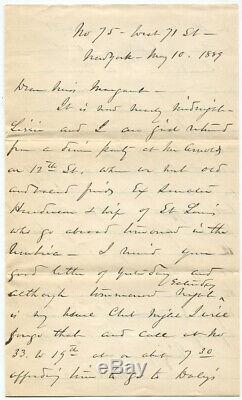 No 75 - West 71 St -
New York - May 10. 1889
Dear Miss Margaret -
It is now nearly midnight -
Lizzie and I are just returned
from a dinner party at Mr Arnolds
on 12th St. where we met old
and valued friends Ex Senator
Henderson & wife of St Louis
who go abroad tomorrow in the
Umbria - I received your
good letter of Yesterday and
although tomorrow
Saturday
night -
is my home Club night I will
forego that and call at No
33. W 19th at or abt 7 30
affording time to go to Daly's